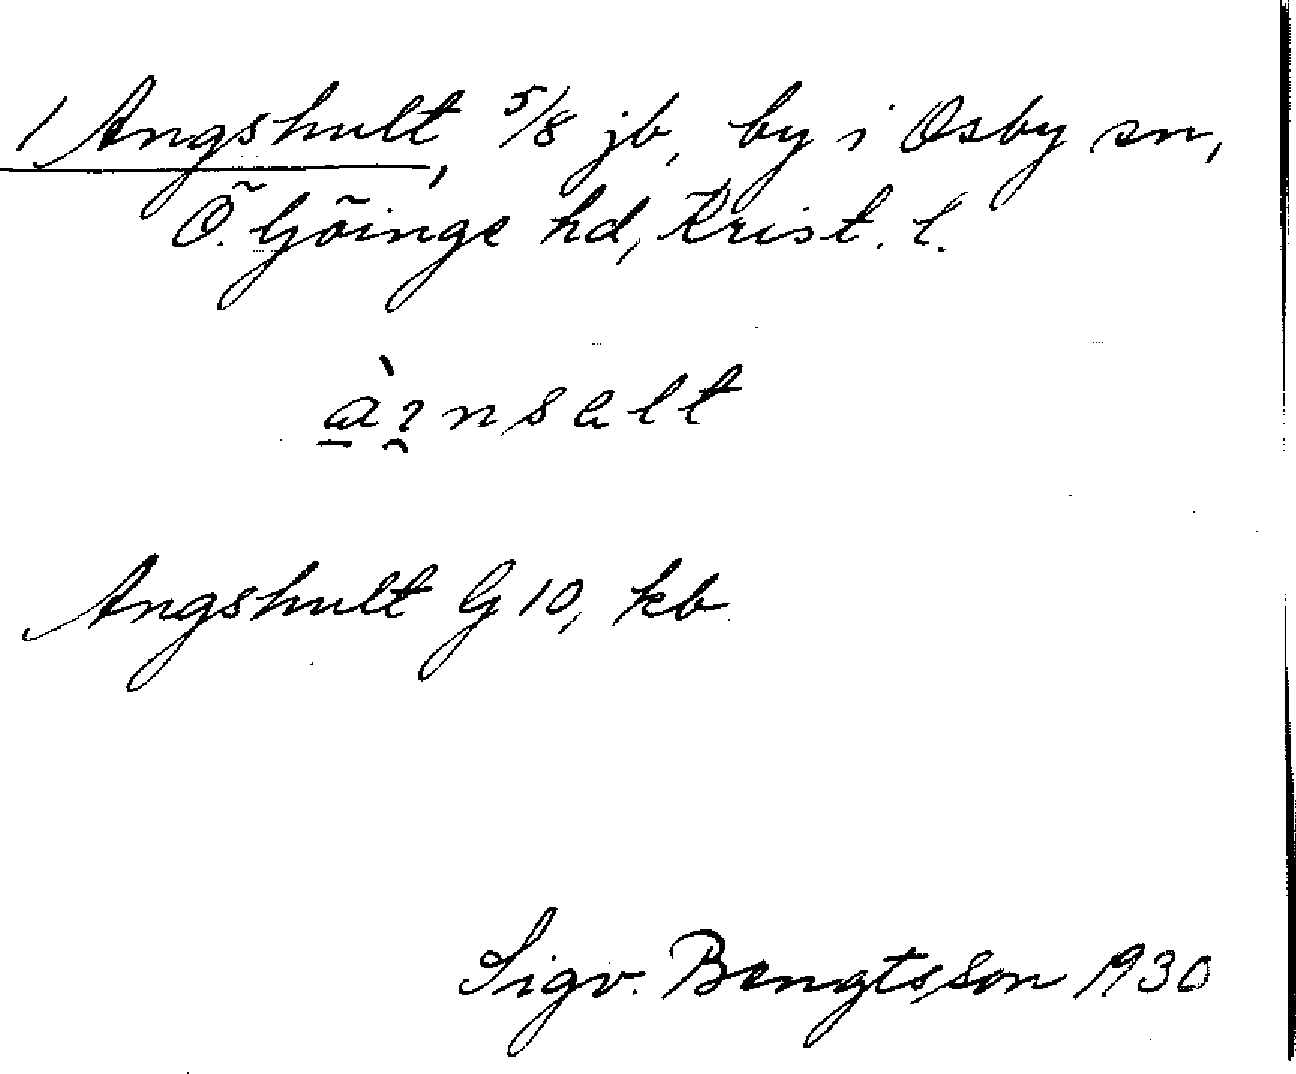 1 Angshult, 5/8 jb, by i Osby sn,
Ö. Göinge hd, Krist. l.
Angshult G 10, kb
Sigv. Bengtsson 1930